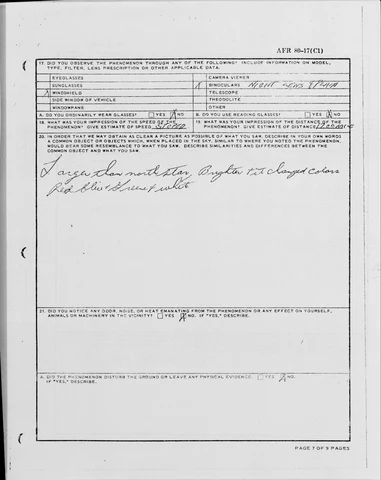 AFR 80-17(C1)
17. DID YOU OBSERVE THE PHENOMENON THROUGH ANY OF THE FOLLOWING? INCLUDE INFORMATION ON MODEL, TYPE, FILTER, LENS PRESCRIPTION OR OTHER APPLICABLE DATA.
EYEGLASSES CAMERA VIEWER
SUNGLASSES X BINOCULARS NIGHT
X WINDSHIELD TELESCOPE
SIDE WINDOW OF VEHICLE THEODOLITE
WINDOWPANE OTHER
A. DO YOU ORDINARILY WEAR GLASSES? YES X NO B. DO YOU USE READING GLASSES? YES X NO
18. WHAT WAS YOUR IMPRESSION OF THE SPEED OF THE PHENOMENON? GIVE ESTIMATE OF SPEED
19. WHAT WAS YOUR IMPRESSION OF THE DISTANCE OF THE PHENOMENON? GIVE ESTIMATE OF DISTANCE
20. IN ORDER THAT WE MAY OBTAIN AS CLEAR A PICTURE AS POSSIBLE OF WHAT YOU SAW, DESCRIBE IN YOUR OWN WORDS
A COMMON OBJECT OR OBJECTS WHICH, WHEN PLACED IN THE SKY, SIMILAR TO WHERE YOU NOTED THE PHENOMENON,
WOULD BEAR SOME RESEMBLANCE TO WHAT YOU SAW. DESCRIBE SIMILARITIES AND DIFFERENCES BETWEEN THE
COMMON OBJECT AND WHAT YOU SAW.
Larger than north star, Brighter & it changed colors
Red, blue & Green & white
21. DID YOU NOTICE ANY ODOR, NOISE, OR HEAT EMANATING FROM THE PHENOMENON OR ANY EFFECT ON YOURSELF,
ANIMALS OR MACHINERY IN THE VICINITY? YES X NO. IF "YES," DESCRIBE.
A. DID THE PHENOMENON DISTURB THE GROUND OR LEAVE ANY PHYSICAL EVIDENCE. YES X NO.
IF "YES," DESCRIBE.
PAGE 7 OF 9 PAGES